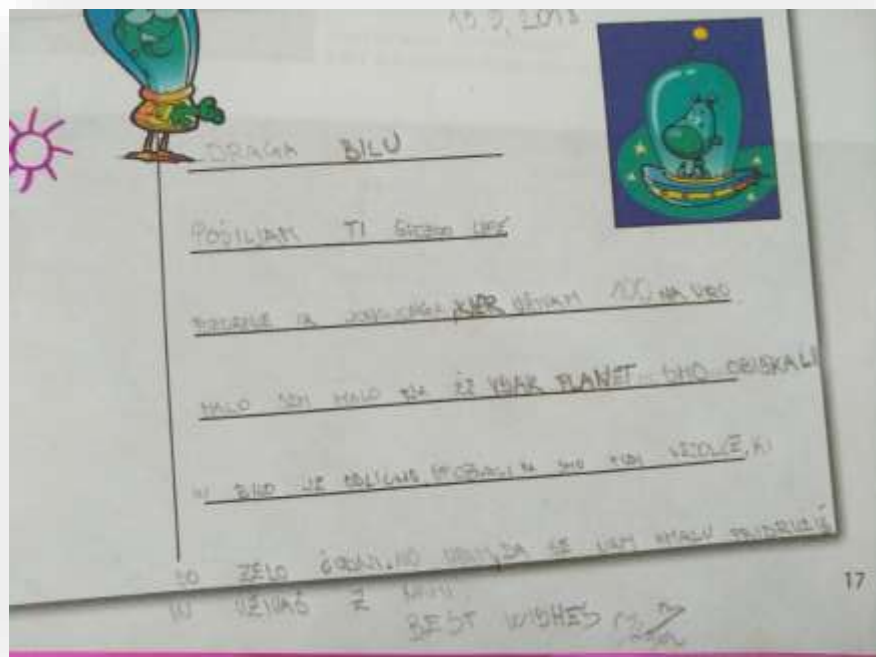 15.5, 2018
DRAGA BILU
POŠILJAM TI LEPE
IZ KJER UŽIVAM 100 NA URO.
MALO SEM MALO TJA ŽE VSAK PLANET SMO OBISKALI
IN BILO JE ODLIČNO, SMO TUDI VEZOLCE, KI
SO ZELO ČUDNI. NO UPAM, DA SE NAM KMALU PRIDRUŽIŠ
IN UŽIVAŠ Z NAMI.
BEST WISHES
17